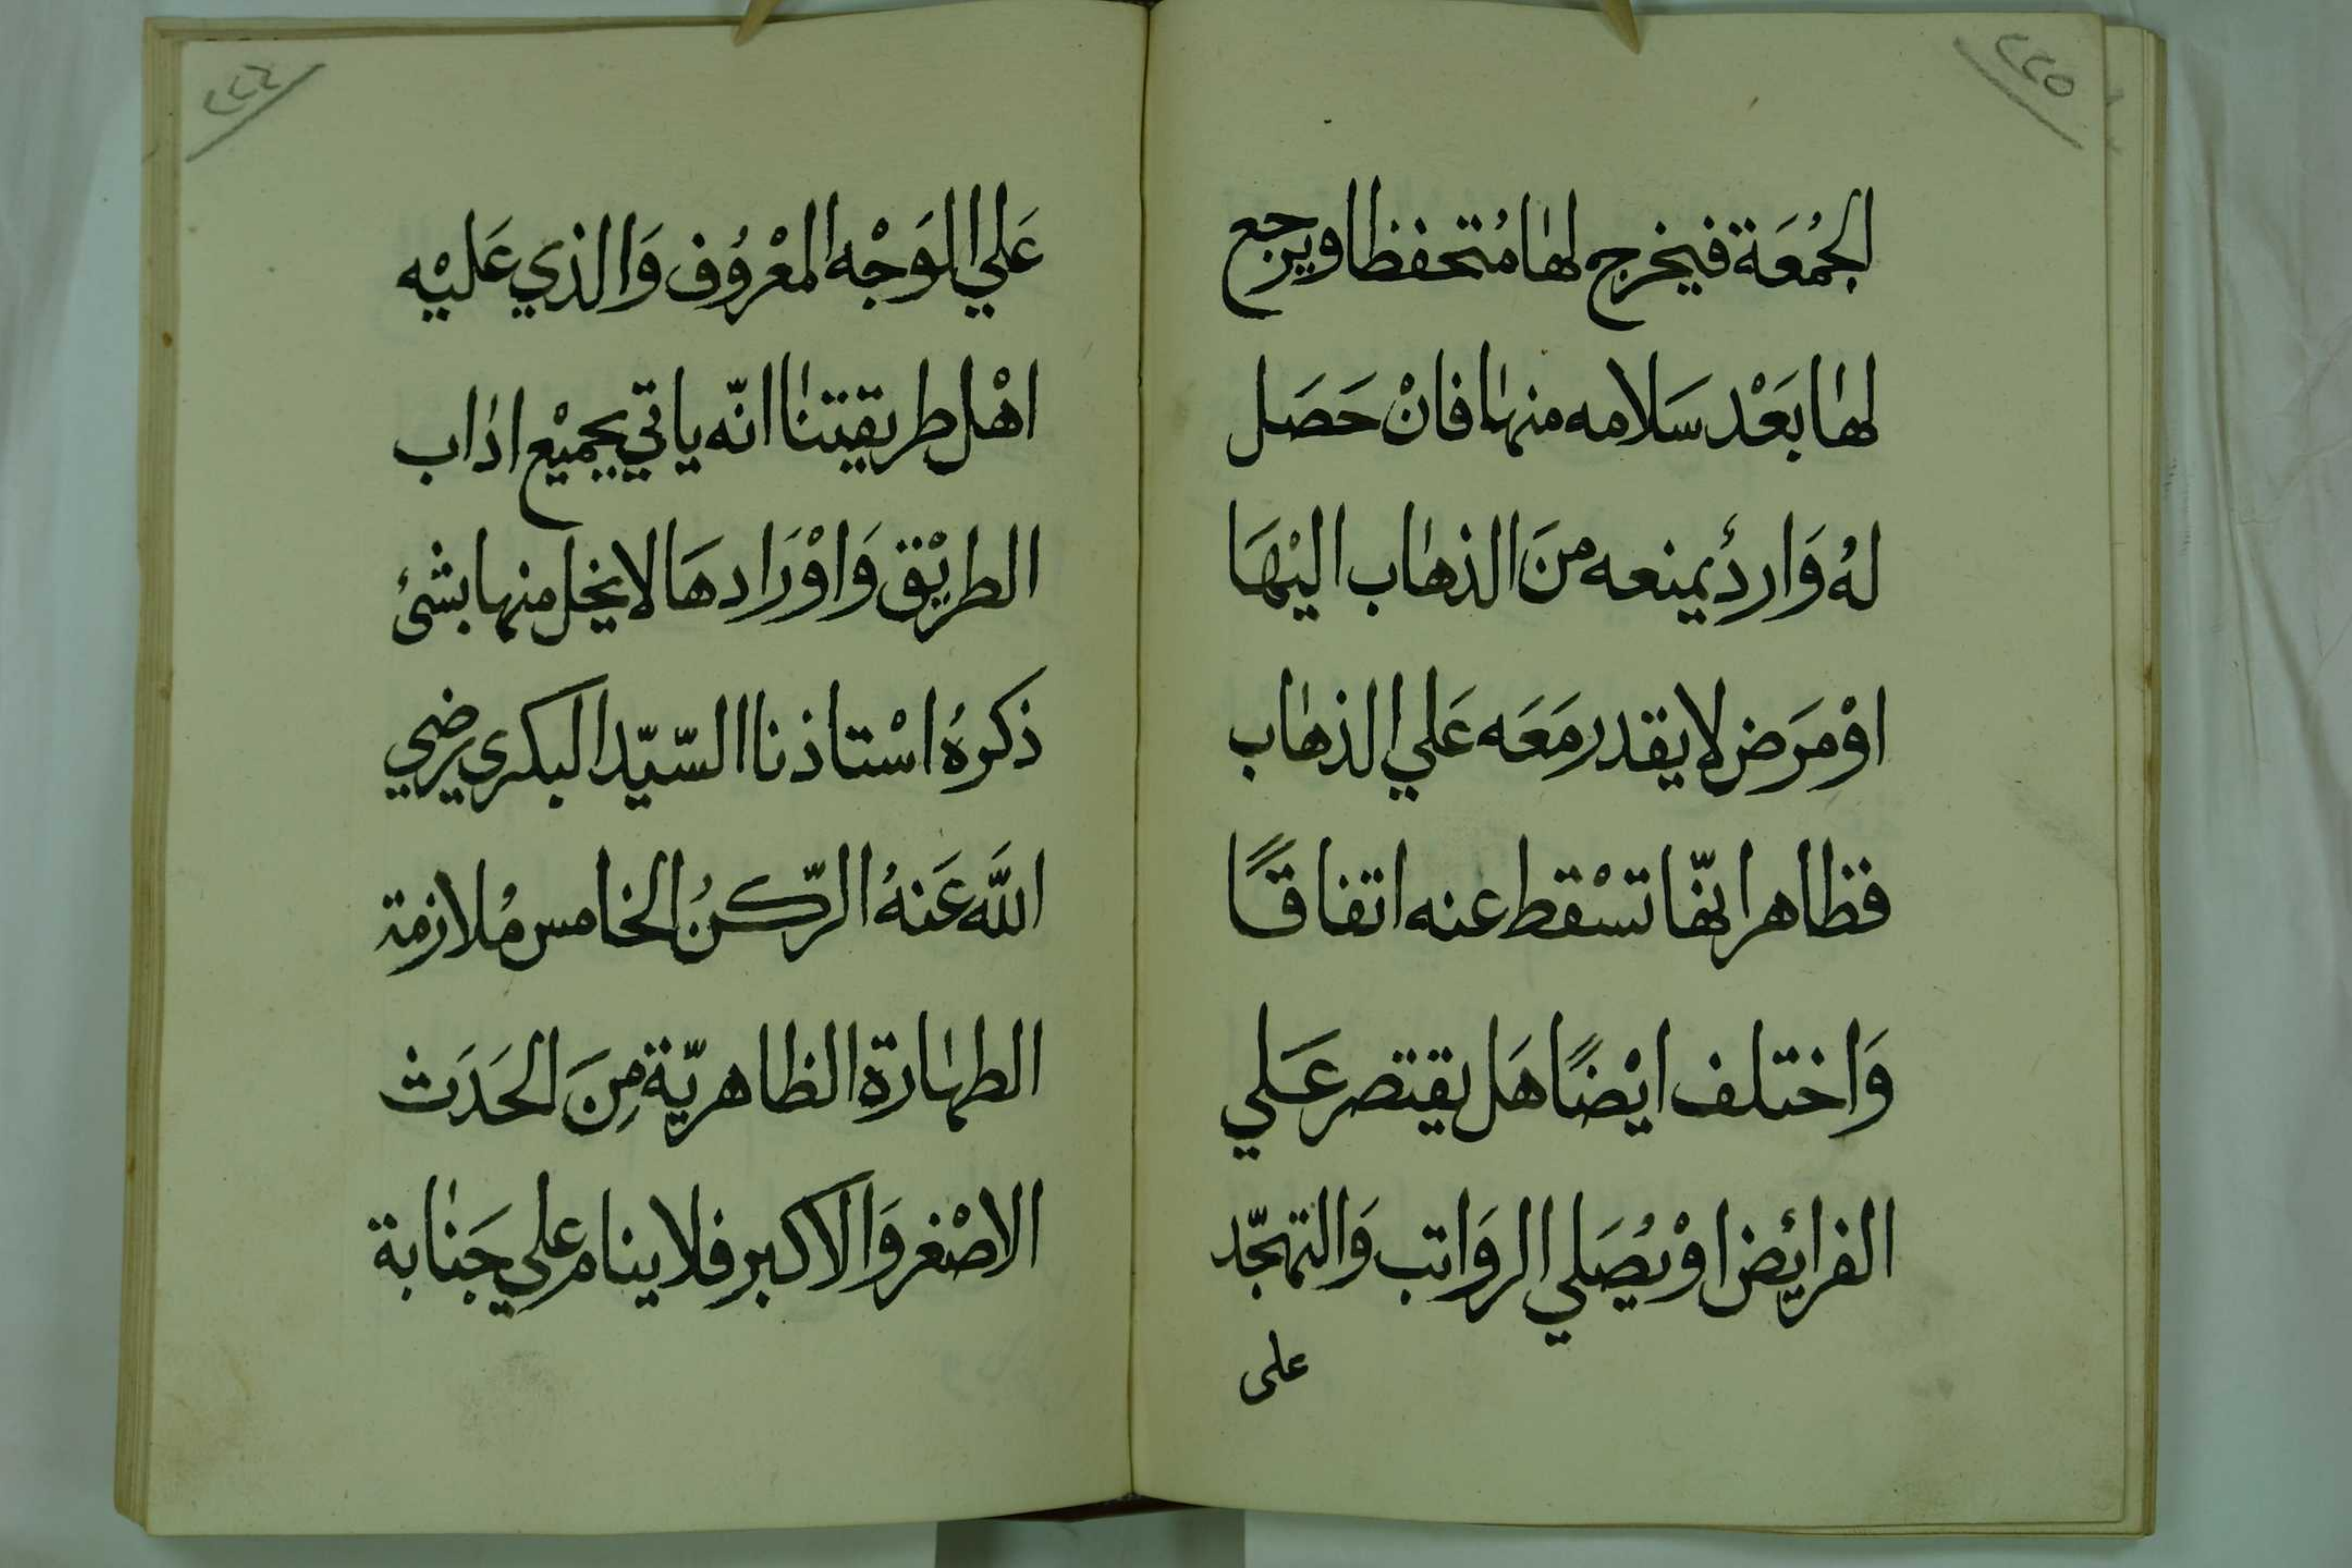 ٢٢٥
الجُمُعَة فيخرج لهٰا مُتحفظا ويرجع
لهٰا بَعْد سَلامه منهٰا فانْ حَصَل
لهُ وَاردٌ يمنعه منَ الذهٰاب اليْهَا
اوْ مَرَض لا يقدر مَعَه عَلي الذهٰاب
فظاهر انهّا تسْقط عنه اتفاقًا
وَاختلف ايْضًا هَل يقتصر عَلي
الفرائض اوْ يُصَلي الروَاتب وَالتهجّد
على
٢٢٦
عَلي الوَجْه المعْرُوف وَالذي عَليْه
اهْل طريقتنٰا انّه ياتي بجميْع ادٰاب
الطريْق وَاوْرَادهَا لا يخل منها بشئ
ذكرهُ اسْتاذنا السّيّد البكري رضي
اللَّه عَنهُ الرّكنُ الخامس مُلازمة
الطهٰارة الظاهريّة مِنَ الحَدَث
الاصْغر وَالاكبر فلا ينام علي جَنٰابة